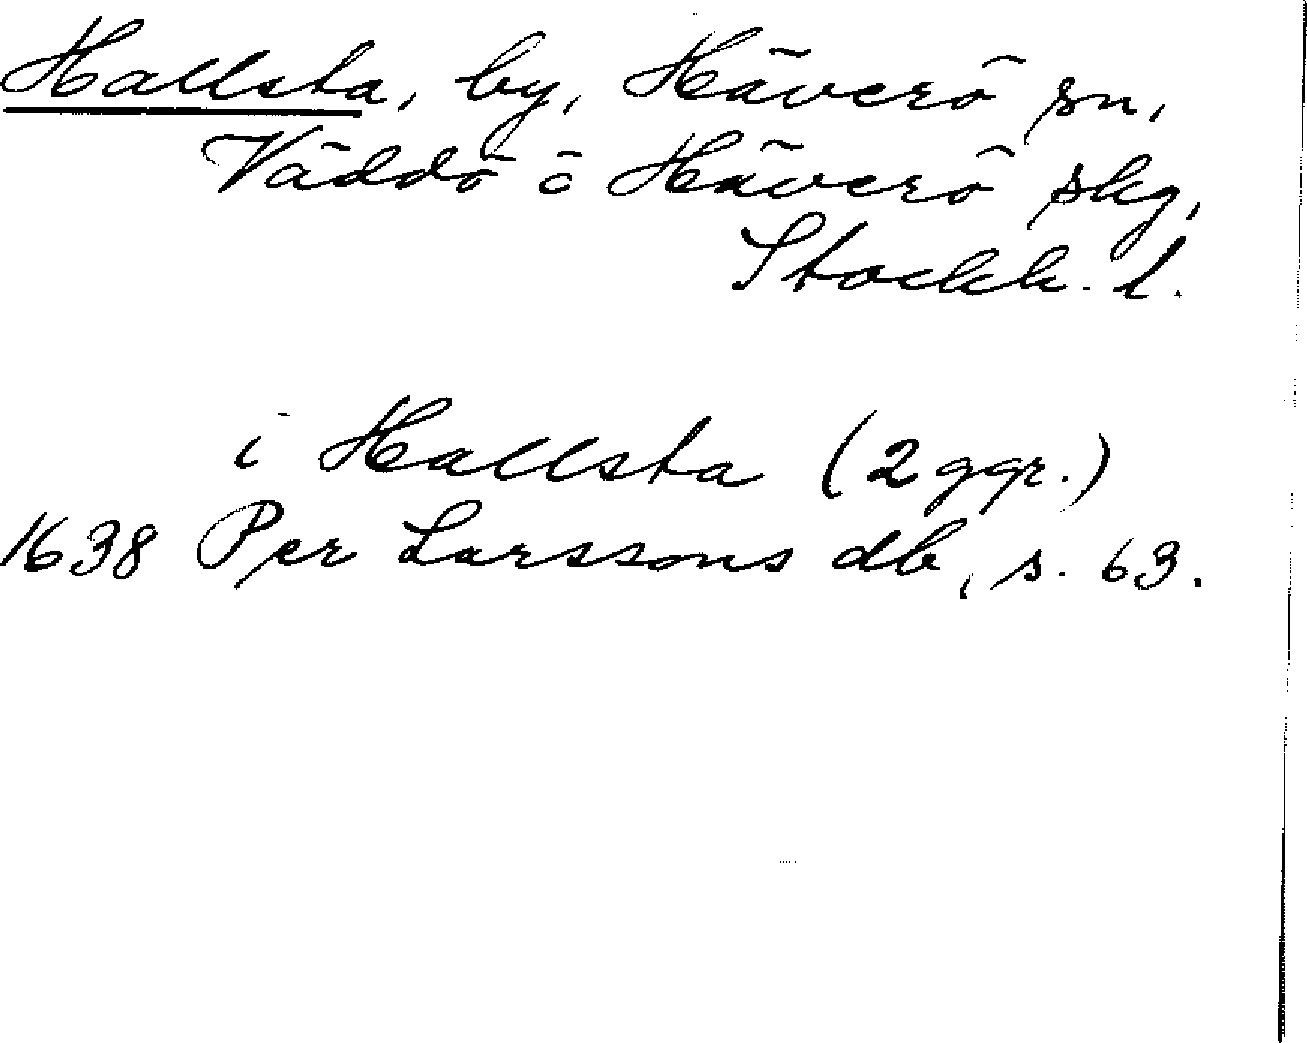 Hallsta, by, Häverö sn,
Väddö o Häverö skg,
Stockh. l.
i Hallsta (2 ggr.)
1638 Per Larssons db, s. 63.